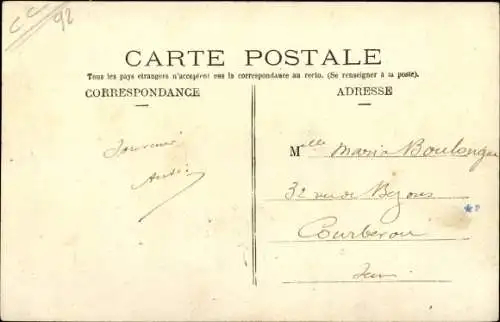 CC
92
CARTE POSTALE
Tous les pays étrangers n'acceptent pas la correspondance au recto. (Se renseigner à la poste).
CORRESPONDANCE
ADRESSE
Souvenir
Mlle Maria Boulongne
32 rue de Bezons
Courbevoie
Seine